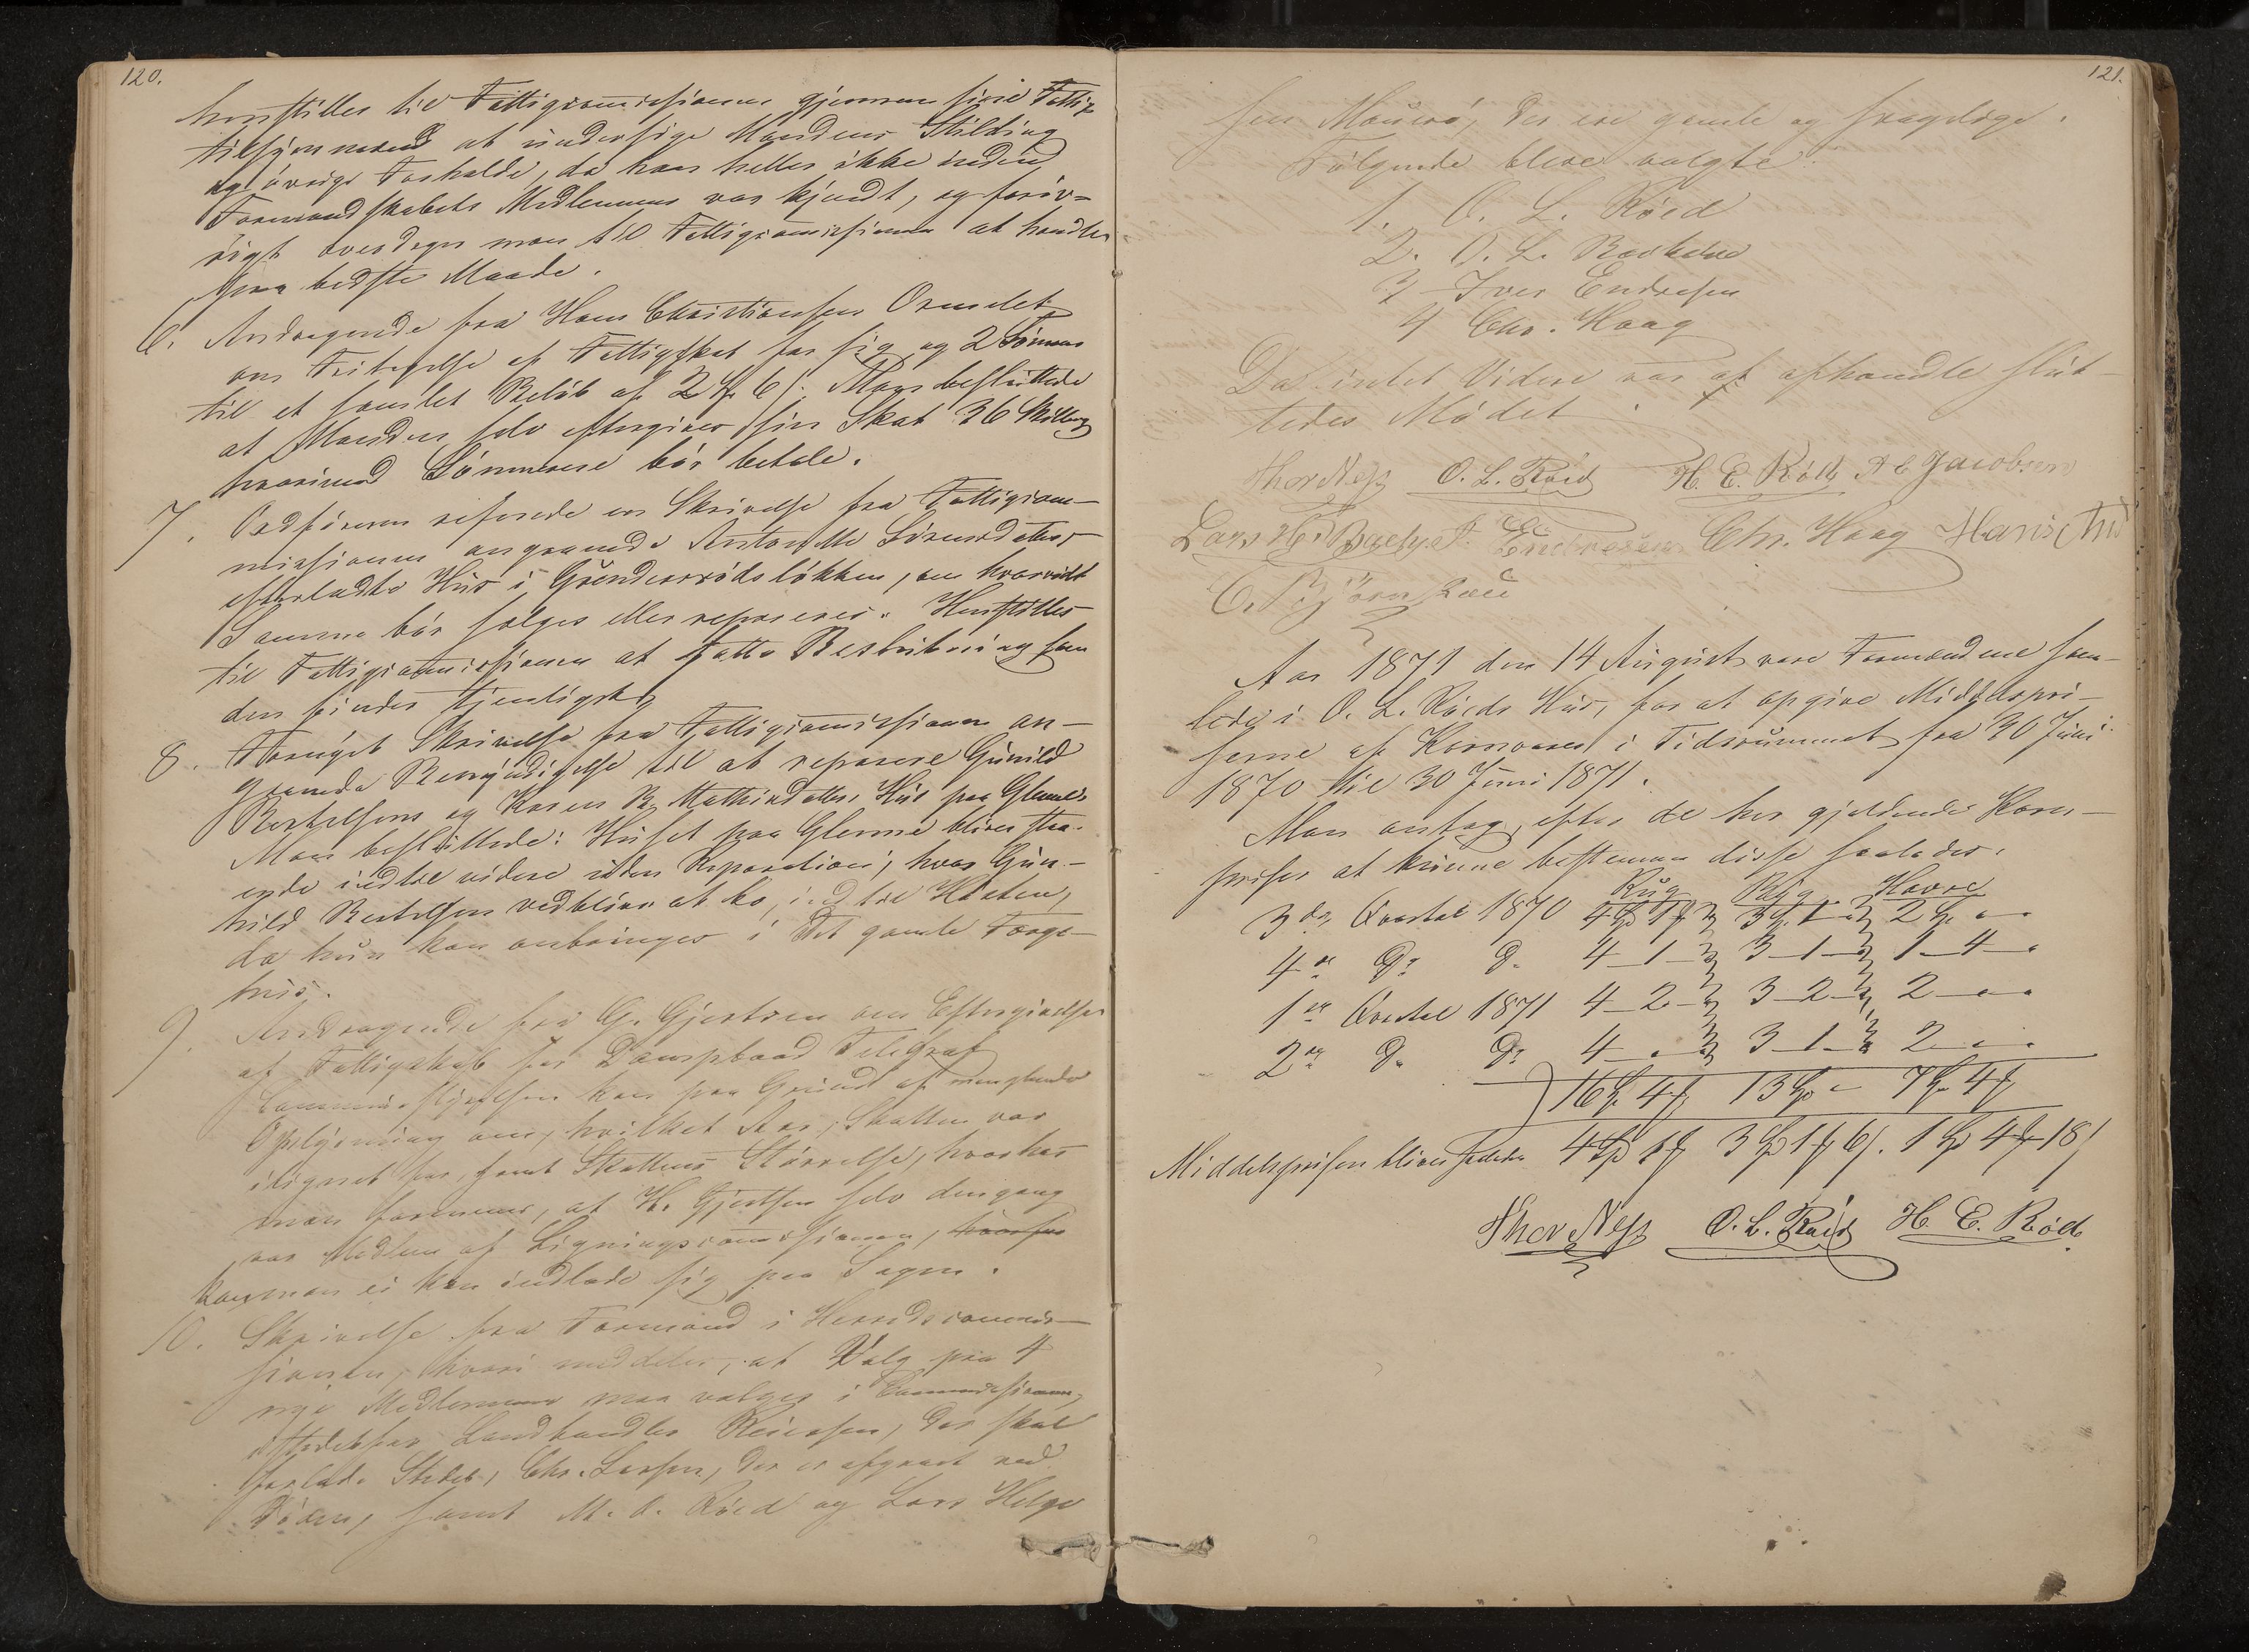 120.
henstilles til Fattigcomissionen gjennem sine Fattig-
tilsynsmænd at undersøge Mandens Stilding
og øvrige Forholde, da han heller ikke inden
Formandskabets Medlemmer var kjendt, og forøv-
rigt overdrages man til Fattigcomissionen at handle
paa bedste Maade.
6. Andragende fra Hans Christiansen Ormelet
om Fritagelse af Fattigskat for sig og 2 Sønner
til et samlet Beløb af 2 Sp 6 s. Man besluttede
at Manden selv eftergives sin Skat 36 Skilling
hvorimod Sønnerne bør betale.
7. Ordføreren refererede en Skrivelse fra Fattigcom-
missionen angaaende Antonette Sørensdatters
efterladte Hus i Grønderødsløkken, om hvorvidt
Samme bør sælges eller repareres. Henstilles
til Fattigcomissionen at fatte Beslutning som
den finder tjenligst.
8. Foreåget Skrivelse fra Fattigcomissionen an-
gaaende Bemyndigelse til at reparere Gunild
Bertelsens og Karen B. Mathisdatters Hus paa Glenne.
Man besluttede: Huset paa Glenne bliver staa-
ende indtil videre uden Reparation, hvor Gun-
hild Bertelsen vedbliver at bo, indtil Høsten,
da hun kan anbringes i Det gamle Færge-
hus.
9. Andragende fra G. Gjertsen om Eftergivelse
af Fattigskat for Dampbaad Telegraf
Communestyrelsen kan paa Grund af manglende
Oplysning om, hvilket Aar, Skatten var
ilignet for, samt Skattens Størrelse, hvorhos
man formener, at H. Gjertsen selv dengang
var Medlem af Ligningscomissionen, hvorfor
man ei kan indlade sig paa Sagen.
10. Skrivelse fra Formand i Herredscommis-
sionen, hvori meddeles, at Valg paa 4
nye Medlemmer maa vælges i Commissionen,
istedetfor Landhandler Reiersen, der skal
forlade Stedet, Chr. Larsen, der er afgaaet ved
Døden, samt M. A. Røed og Lars Helge
121.
sen Mauerø, der ere gamle og svagelige.
Følgende bleve valgte
1. O. L. Røed
2. O. L. Bakken
3 Iver Endresen
4 Chr. Haag
Da intet Videre var at afhandle slut-
tedes Mødet.
Thor Ness O. L. Røed H. E. Rød A C Jacobsen
Lars H. Bache I. Endresen Chr. Haag Hans And
O. Bjørnskau
Aar 1871 den 14 August vare Formændene sam-
lede i O. L. Røeds Hus, for at opgive Middelspri-
serne af Kornvarer i Tidsrummet fra 30 Juni
1870 til 30 Juni 1871.
Man antog, efter de her gjeldende Korn-
priser at kunne bestemme disse saaledes.
Rug Byg Havre
3die Qvartal 1870 4 Sp 1 3 Sp 1 2 Sp
4de Do Do 4 - 1 - 3 - 1 - 1 - 4 -
1ste Qvartal 1871 4 - 2 - 3 - 2 - 2 -
2det Do Do 4 - 3 - 1 - 2 -
16 Sp 4 13 Sp - 7 Sp 4
Middelsprisen bliver saaledes 4 Sp 1 3 Sp 1 6 s. 1 Sp 4 18 s
Thor Ness O. L. Røed H. E. Rød